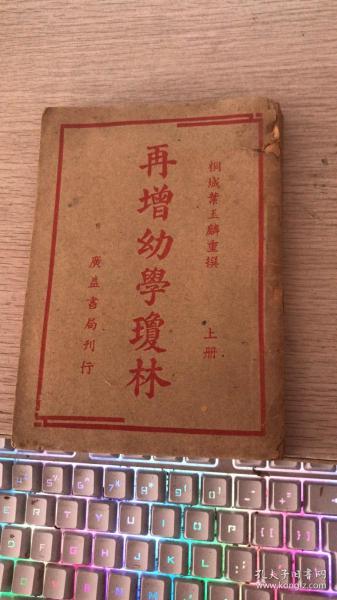 桐城葉玉麟重撰
上册
再增幼學瓊林
廣益書局刊行
孔夫子旧书网
www.kongfz.com